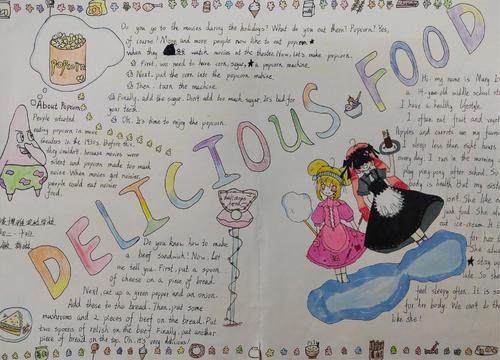 Do you go to the movies during the holidays? What do you eat there? Popcorn? Yes,
of course! More and more people now like to eat popcorn
when they watch movies at the theater. Now, let's make popcorn.
First, we need to have corn, sugar, a popcorn machine.
Next, put the corn into the popcorn machine.
Then, turn the machine.
Finally, add the sugar. Don't add too much sugar. It's bad for
your teeth.
Oh. It's time to enjoy the popcorn.
POPCORN
About Popcorn
People started
eating popcorn in movie
theaters in the 1930s. Before this,
they couldn't, because movies were
silent and popcorn made too much
noise. When movies got noisier,
people could eat noisier
food.
DELICIOUS FOOD
Do you know how to make
a beef sandwich? Now, let
me tell you. First, put a spoon
of cheese on a piece of bread.
Next, cut up a green pepper and an onion.
Add these to the bread. Then, put some
mushrooms and 2 pieces of beef on the bread. Put
two spoons of relish on the beef. Finally, put another
piece of bread on the top. Oh, it's very delicious!
Hi, my name is Mary
I have a healthy lifestyle.
I often eat fruit and
Apples and carrots are my
I sleep less than eight hours
every day. I run in the morning
play ping-pong after school. So
body is health. But my
She like
junk food. She
eat ice-cream. It
for her
She
stay up
late. So she
feel sleepy often. It is
for her body. We can't do
like she!